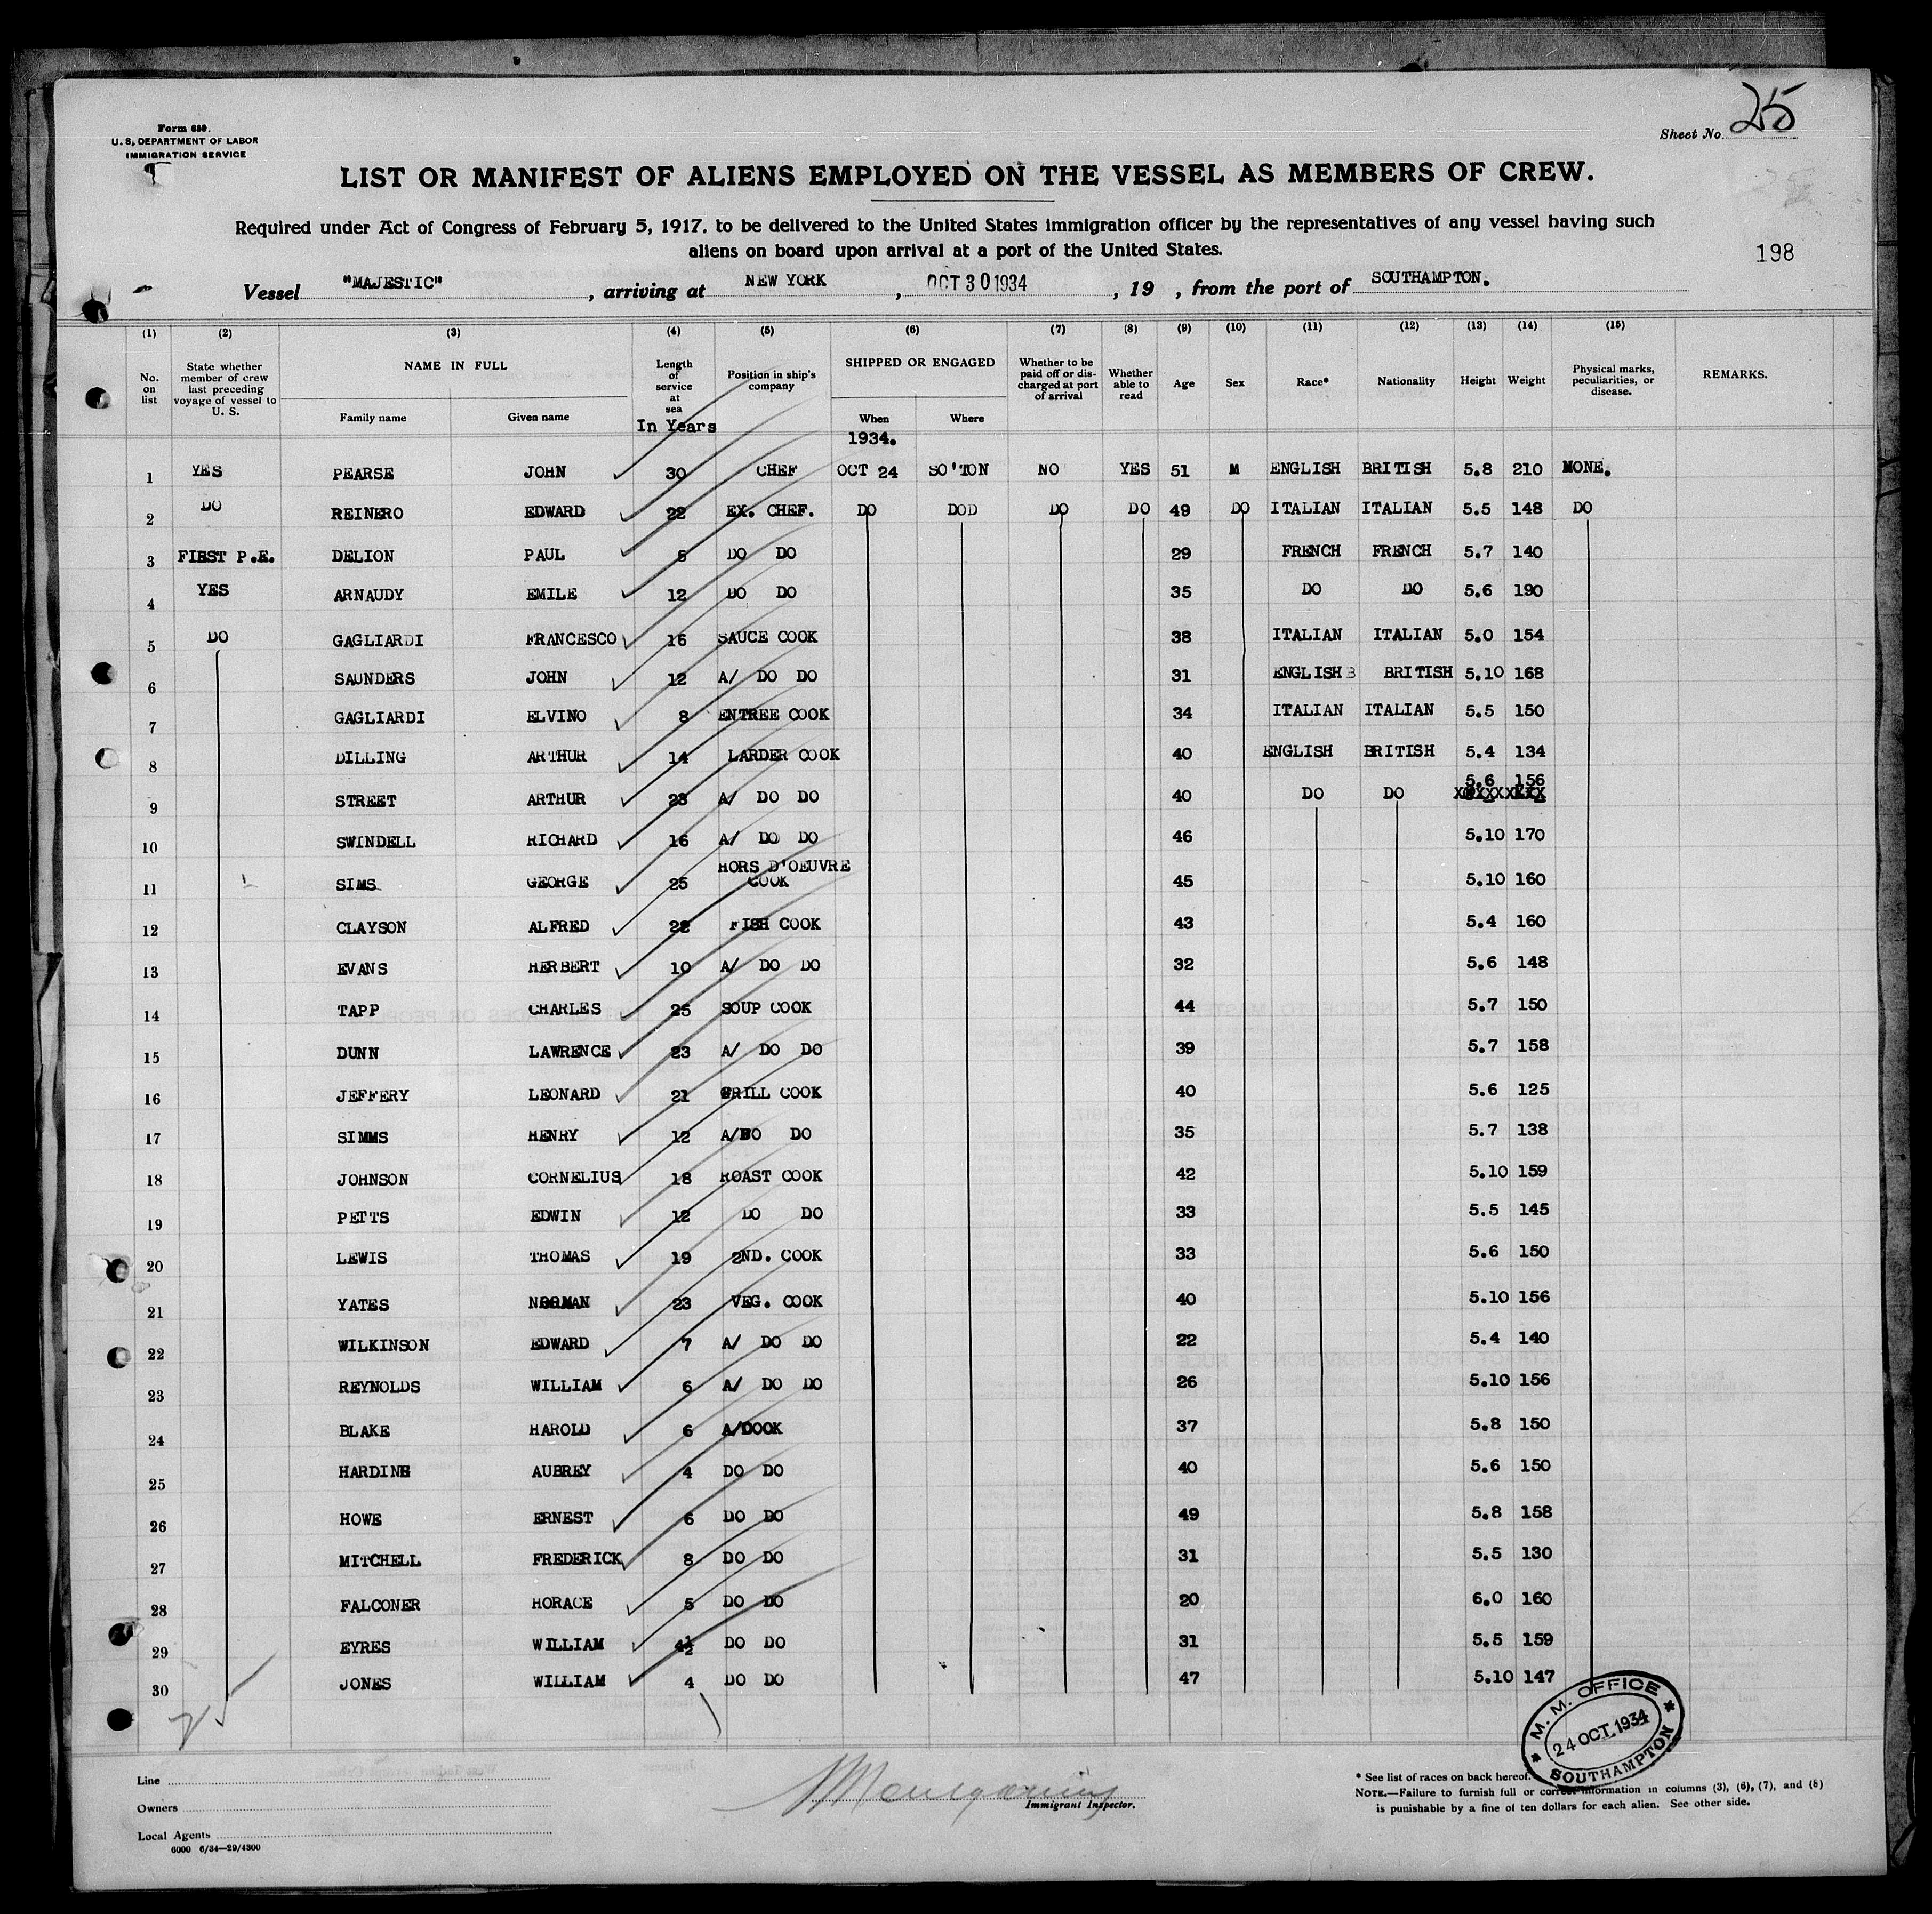 Form 680.
U. S. DEPARTMENT OF LABOR
IMMIGRATION SERVICE
Sheet No. 25
LIST OR MANIFEST OF ALIENS EMPLOYED ON THE VESSEL AS MEMBERS OF CREW.
Required under Act of Congress of February 5, 1917, to be delivered to the United States immigration officer by the representatives of any vessel having such
aliens on board upon arrival at a port of the United States.
198
Vessel "MAJESTIC", arriving at NEW YORK, OCT 30 1934, 19 , from the port of SOUTHAMPTON.
(1) (2) (3) (4) (5) (6) (7) (8) (9) (10) (11) (12) (13) (14) (15)
No. on list State whether member of crew last preceding voyage of vessel to U. S. NAME IN FULL Length of service at sea Position in ship's company SHIPPED OR ENGAGED Whether to be paid off or discharged at port of arrival Whether able to read Age Sex Race* Nationality Height Weight Physical marks, peculiarities, or disease. REMARKS.
Family name Given name In Years When Where
1934.
1 YES PEARSE JOHN 30 CHEF OCT 24 SO'TON NO YES 51 M ENGLISH BRITISH 5.8 210 NONE.
2 DO REINERO EDWARD 22 EX. CHEF. DO DOD DO DO 49 DO ITALIAN ITALIAN 5.5 148 DO
3 FIRST P.E. DELION PAUL DO DO 29 FRENCH FRENCH 5.7 140
4 YES ARNAUDY EMILE 12 DO DO 35 DO DO 5.6 190
5 DO GAGLIARDI FRANCESCO 16 SAUCE COOK 38 ITALIAN ITALIAN 5.0 154
6 SAUNDERS JOHN 12 A/ DO DO 31 ENGLISH BRITISH 5.10 168
7 GAGLIARDI ELVINO 8 ENTREE COOK 34 ITALIAN ITALIAN 5.5 150
8 DILLING ARTHUR 14 LARDER COOK 40 ENGLISH BRITISH 5.4 134
9 STREET ARTHUR 23 A/ DO DO 40 DO DO 5.6 156
10 SWINDELL RICHARD 16 A/ DO DO 46 5.10 170
11 SIMS GEORGE 25 HORS D'OEUVRE COOK 45 5.10 160
12 CLAYSON ALFRED 22 FISH COOK 43 5.4 160
13 EVANS HERBERT 10 A/ DO DO 32 5.6 148
14 TAPP CHARLES 25 SOUP COOK 44 5.7 150
15 DUNN LAWRENCE 23 A/ DO DO 39 5.7 158
16 JEFFERY LEONARD 21 GRILL COOK 40 5.6 125
17 SIMMS HENRY 12 A/DO DO 35 5.7 138
18 JOHNSON CORNELIUS 18 ROAST COOK 42 5.10 159
19 PETTS EDWIN 12 DO DO 33 5.5 145
20 LEWIS THOMAS 19 2ND. COOK 33 5.6 150
21 YATES NORMAN 23 VEG. COOK 40 5.10 156
22 WILKINSON EDWARD 7 A/ DO DO 22 5.4 140
23 REYNOLDS WILLIAM 6 A/ DO DO 26 5.10 156
24 BLAKE HAROLD 6 A/COOK 37 5.8 150
25 HARDING AUBREY 4 DO DO 40 5.6 150
26 HOWE ERNEST 6 DO DO 49 5.8 158
27 MITCHELL FREDERICK 8 DO DO 31 5.5 130
28 FALCONER HORACE 5 DO DO 20 6.0 160
29 EYRES WILLIAM 4½ DO DO 31 5.5 159
30 JONES WILLIAM 4 DO DO 47 5.10 147
M. M. OFFICE
24 OCT. 1934
SOUTHAMPTON
Line
Owners
Local Agents
6000 6/34—29/4300
Immigrant Inspector.
* See list of races on back hereof.
NOTE.—Failure to furnish full or correct information in columns (3), (6), (7), and (8)
is punishable by a fine of ten dollars for each alien. See other side.